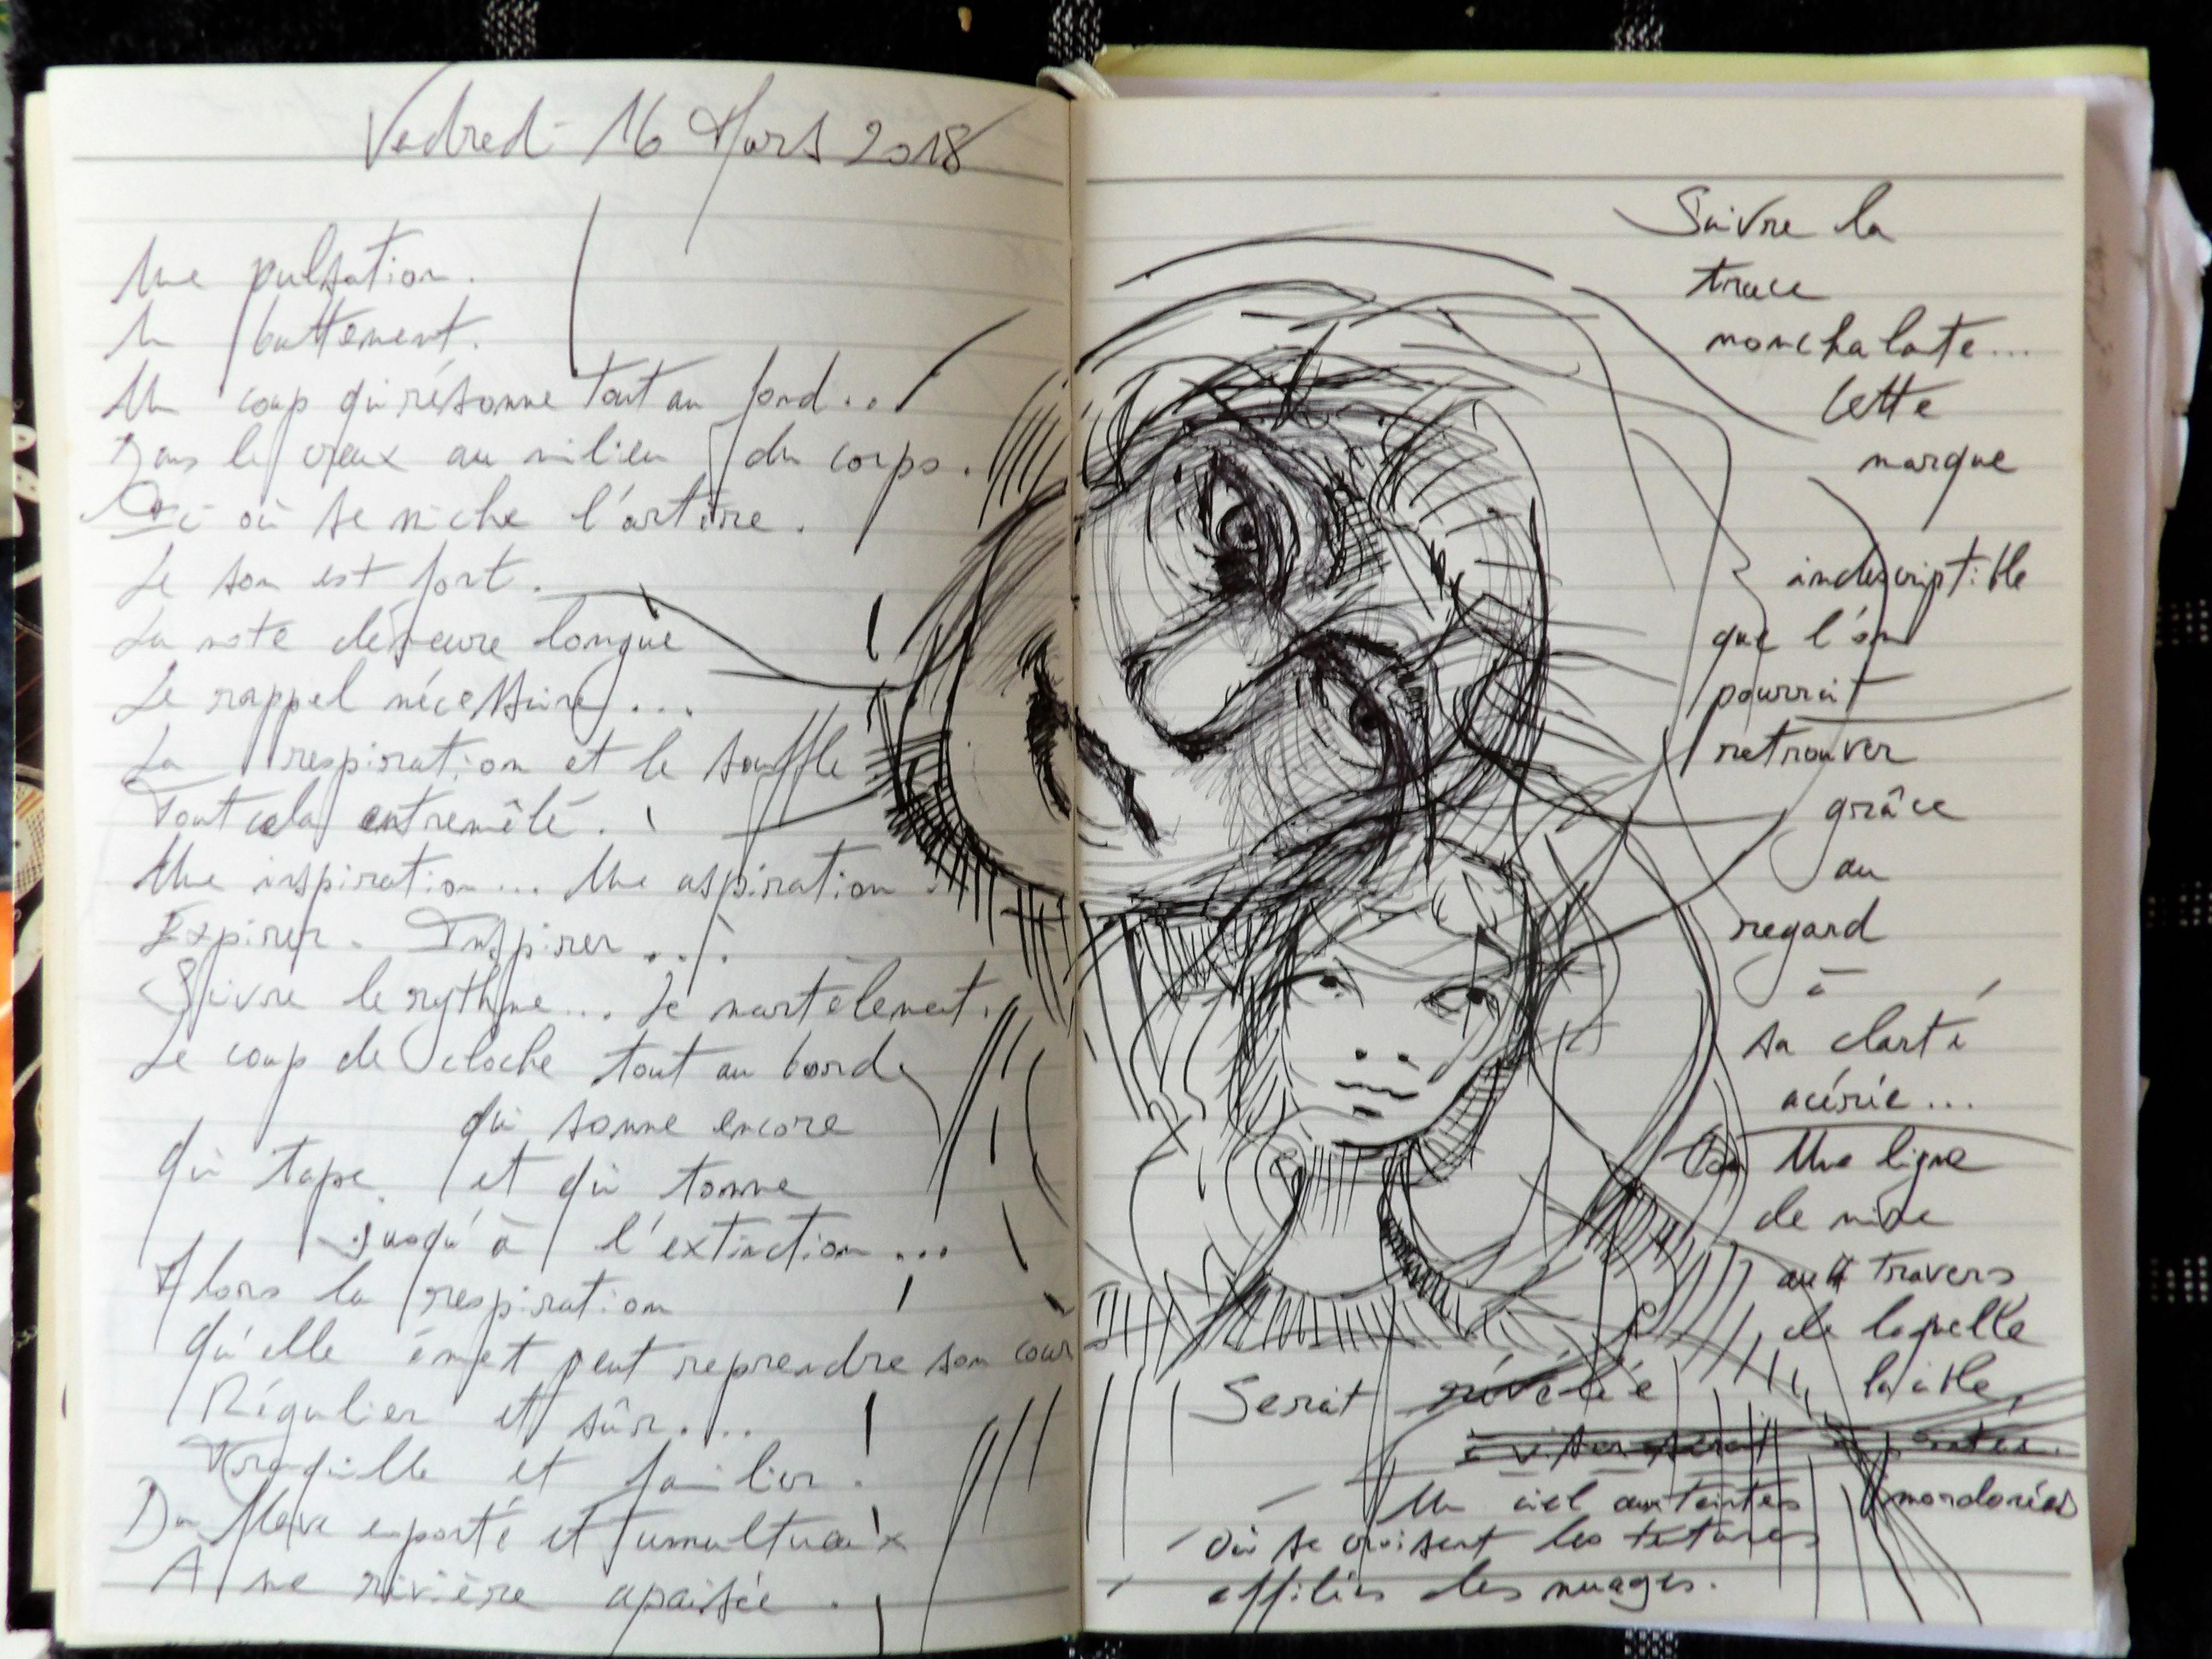 Vendredi 16 Mars 2018
Une pulsation.
Un battement.
Un coup qui résonne tout au fond...
Dans le creux au milieu du corps.
Ici où se niche l'artère.
Le son est fort.
La note demeure longue
Le rappel nécessaire...
La respiration et le souffle
Tout cela entremêlé.
Une inspiration... Une aspiration.
Expirer. Inspirer...
Suivre le rythme... Le martèlement.
Le coup de cloche tout au bord
qui sonne encore
qui tape et qui tonne
jusqu'à l'extinction...
Alors la respiration
qu'elle émet peut reprendre son cour
Régulier et sûr...
Tranquille et familier.
Du fleuve emporté et tumultueux
A une rivière apaisée.
Suivre la
trace
nonchalante...
Cette
marque
indescriptible
que l'on
pourrait
retrouver
grâce
au
regard
à
sa clarté
acérée...
Une ligne
de mire
au travers
de laquelle
la cible
Serait révélée
Un ciel aux teintes mordorées
Où se croisent les textures
effilées des nuages.